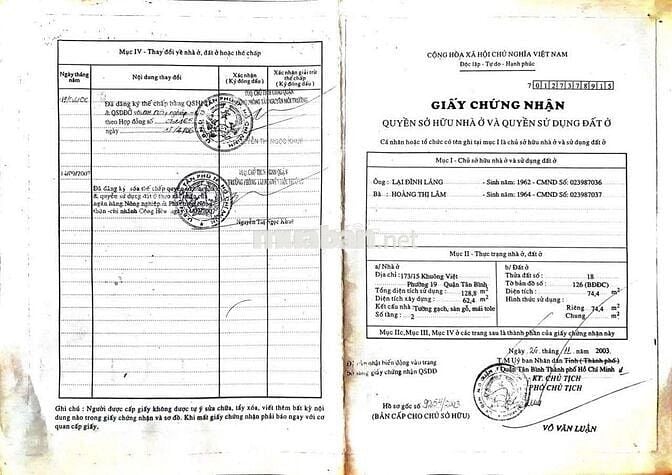 Mục IV - Thay đổi về nhà ở, đất ở hoặc thế chấp
Ngày tháng năm
Nội dung thay đổi
Xác nhận (Ký đóng dấu)
Xác nhận giải trừ thế chấp (Ký đóng dấu)
Đã đăng ký thế chấp bằng QSH
& QSDĐO
theo Hợp đồng số
ngày
Đã đăng ký xóa thế chấp quyền
& quyền sử dụng đất ở theo
ngân hàng Nông nghiệp
Nguyễn Thị Ngọc
Ghi chú : Người được cấp giấy không được tự ý sửa chữa, tẩy xóa, viết thêm bất kỳ nội
dung nào trong giấy chứng nhận và sơ đồ. Khi mất giấy chứng nhận phải báo ngay với cơ
quan cấp giấy.
CỘNG HÒA XÃ HỘI CHỦ NGHĨA VIỆT NAM
Độc lập - Tự do - Hạnh phúc
7 0 1 2 7 3 7 8 9 1 5
GIẤY CHỨNG NHẬN
QUYỀN SỞ HỮU NHÀ Ở VÀ QUYỀN SỬ DỤNG ĐẤT Ở
Cá nhân hoặc tổ chức có tên ghi tại mục I là chủ sở hữu nhà ở và sử dụng đất ở
Mục I - Chủ sở hữu nhà ở và sử dụng đất ở
Ông : LẠI ĐÌNH LẢNG - Sinh năm: 1962 - CMND Số: 023987036
Bà : HOÀNG THỊ LÂM - Sinh năm: 1964 - CMND Số: 023987037
muaban.net
Mục II - Thực trạng nhà ở, đất ở
a/ Nhà ở
Địa chỉ : 173/15 Khuông Việt
Phường 19 Quận Tân Bình
Tổng diện tích sử dụng : 128,8 m²
Diện tích xây dựng : 62,4 m²
Kết cấu nhà : Tường gạch, sàn gỗ, mái tole
Số tầng : 2
b/ Đất ở
Thửa đất số : 18
Tờ bản đồ số : 126 (BĐĐC)
Diện tích : 74,4 m²
Hình thức sử dụng :
Riêng 74,4 m²
Chung m²
Mục IIc, Mục III, Mục IV ở các trang sau là thành phần của giấy chứng nhận này
Ngày 26 tháng 11 năm 2003
T.M Ủy ban Nhân dân Tỉnh (Thành phố)
Quận Tân Bình Thành phố Hồ Chí Minh
KT. CHỦ TỊCH
PHÓ CHỦ TỊCH
nhật biến động vào trang
giấy chứng nhận QSDĐ
Hồ sơ gốc số
(BẢN CẤP CHO CHỦ SỞ HỮU)
VÕ VĂN LUẬN